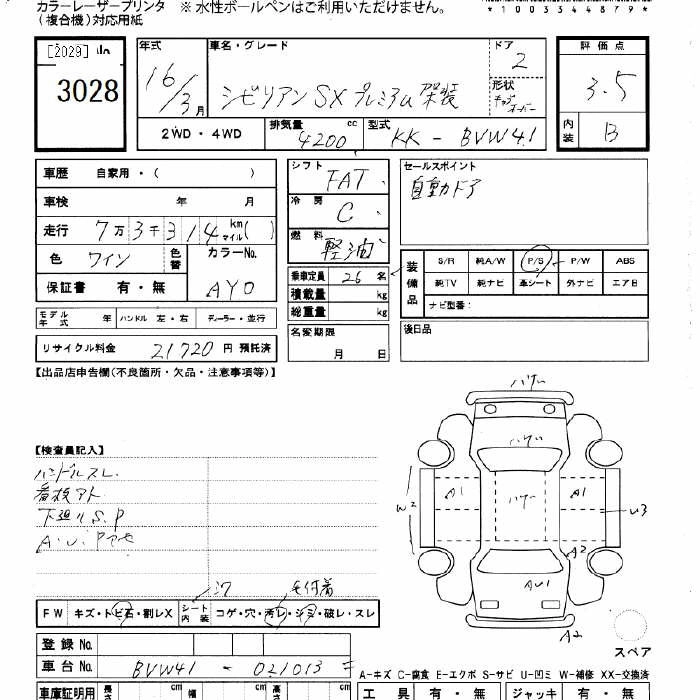 カラーレーザープリンタ ※水性ボールペンはご利用いただけません。
(複合機)対応用紙
*1003344879*
[2029]
3028
年式 16/3月
車名・グレード シビリアンSX プレミアム 架装
ドア 2
形状 キャブオーバー
評価点 3.5
内装 B
2WD・4WD
排気量 4200 cc
型式 KK - BVW41
車歴 自家用・( )
車検 年 月
走行 7万3千314 km マイル( )
色 ワイン 色替
カラーNo. AY0
保証書 有・無
モデル年式 年 ハンドル 左・右 ディーラー・並行
リサイクル料金 21720 円 預託済
シフト FAT
冷房 C
燃料 軽油
乗車定員 26 名
積載量 kg
総重量 kg
名変期限 月 日
セールスポイント
自動カドア
装備品 S/R 純A/W P/S P/W ABS
純TV 純ナビ 革シート 外ナビ エアB
ナビ型番:
後日品
【出品店申告欄(不良箇所・欠品・注意事項等)】
【検査員記入】
ハンドルスレ
看板アト
下廻りS.P
A.U.Pアセ
W2
A1
A1
U3
A2
AU1
A2
スペア
毛付着
FW キズ・トビ石・割レX シート内装 コゲ・穴・汚レ・シミ・破レ・スレ
登録No.
車台No. BVW41 - 021013
A-キズ C-腐食 E-エクボ S-サビ U-凹ミ W-補修 XX-交換済
車庫証明用 長さ cm 幅 cm 高さ cm
工具 有・無 ジャッキ 有・無